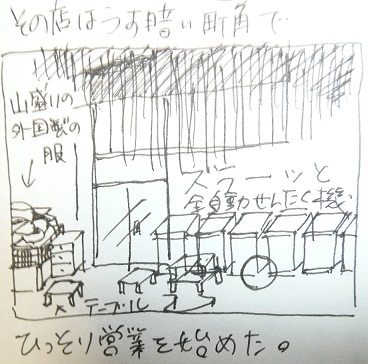 その店はうす暗い町角で
山盛りの
外国製の
服
ズラーッと
全自動せんたく機
テーブル
ひっそり営業を始めた。